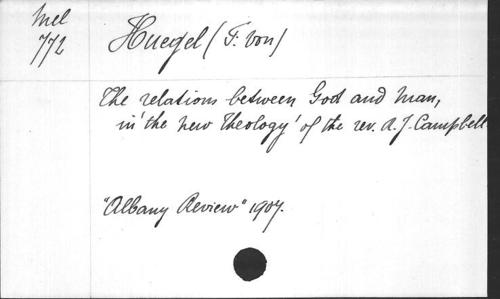 Mel
772
Huegel (F. von)
The relations between God and man,
in 'the new Theology' of the rev. A. J. Campbell
"Albany Review" 1907.